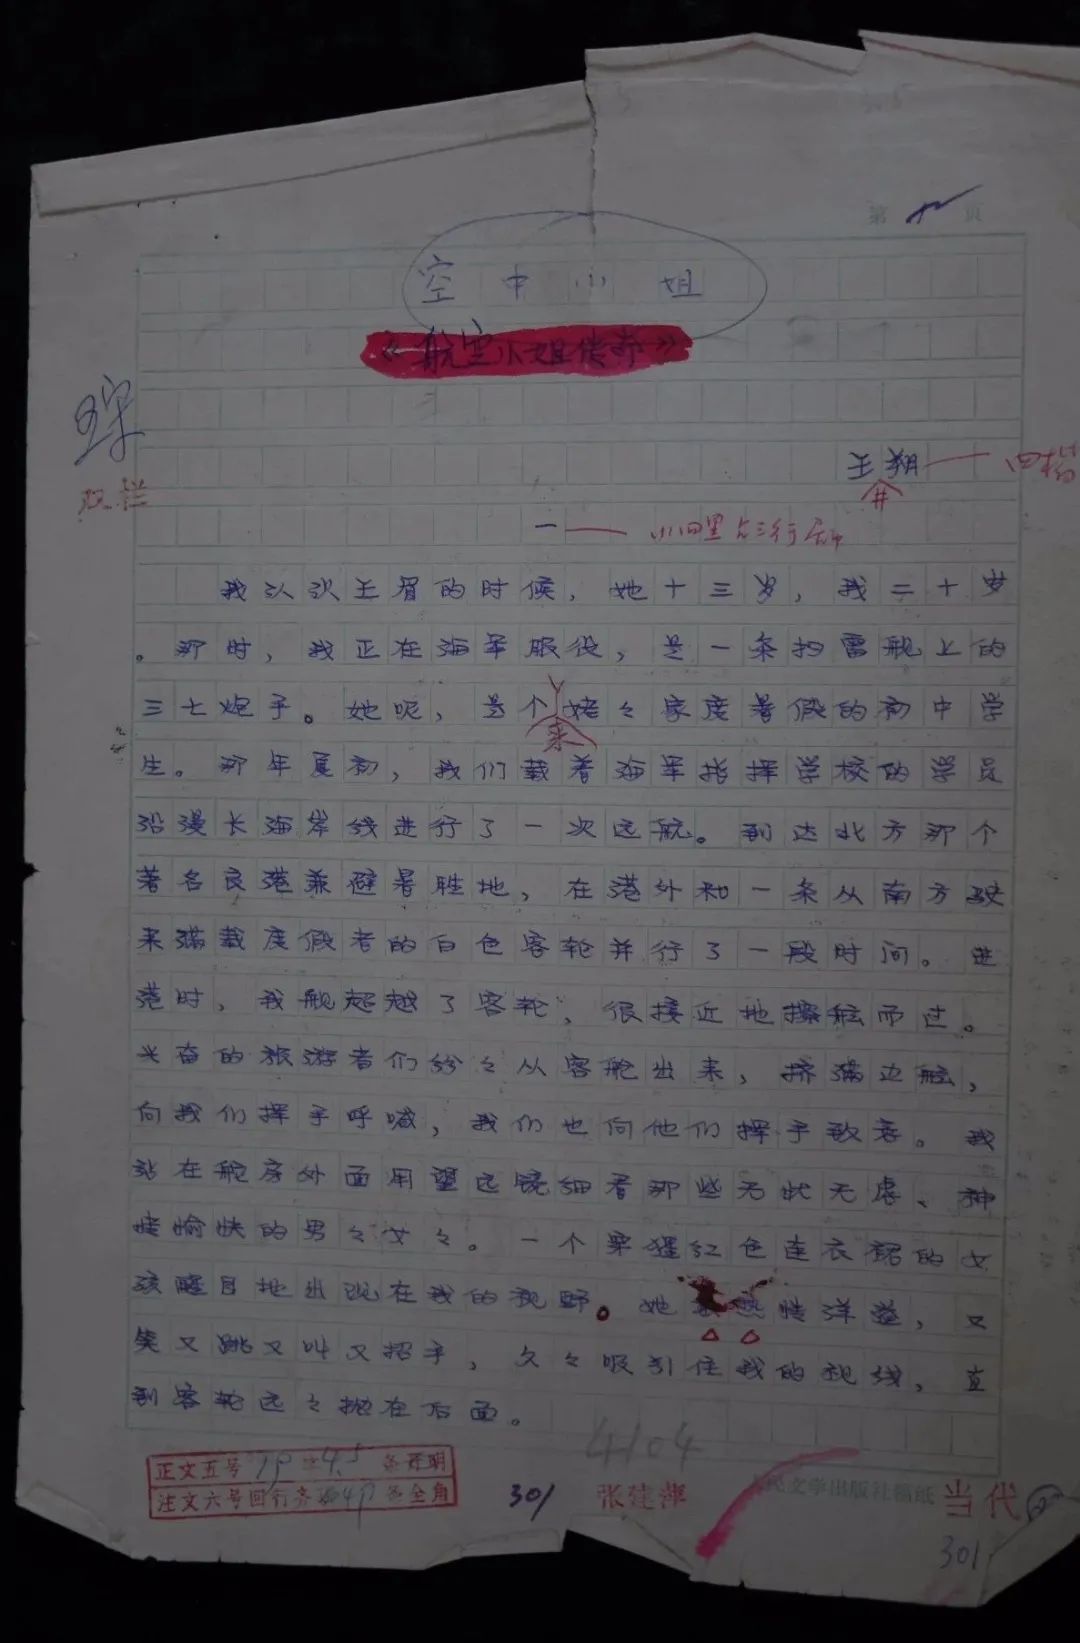 第 页
空中小姐
《航空小姐传奇》
王朔
一
我认识王眉的时候，她十三岁，我二十岁
。那时，我正在海军服役，是一条扫雷舰上的
三七炮手。她呢，是个来姥々家度暑假的初中学
生。那年夏初，我们载着海军指挥学校的学员
沿漫长海岸线进行了一次远航。到达北方那个
著名良港兼避暑胜地，在港外和一条从南方驶
来满载度假者的白色客轮并行了一段时间。进
港时，我舰超越了客轮，很接近地擦舷而过。
兴奋的旅游者们纷々从客舱出来，挤满边舷，
向我们挥手呼喊，我们也向他们挥手致意。我
站在舱房外面用望远镜细看那些无忧无虑、神
情愉快的男々女々。一个穿猩红色连衣裙的女
孩醒目地出现在我的视野。她 热情洋溢，又
笑又跳又叫又招手，久々吸引住我的视线，直
到客轮远々抛在后面。
4104
正文五号
注文六号回行齐
301
张建萍
人民文学出版社稿纸
当代
301